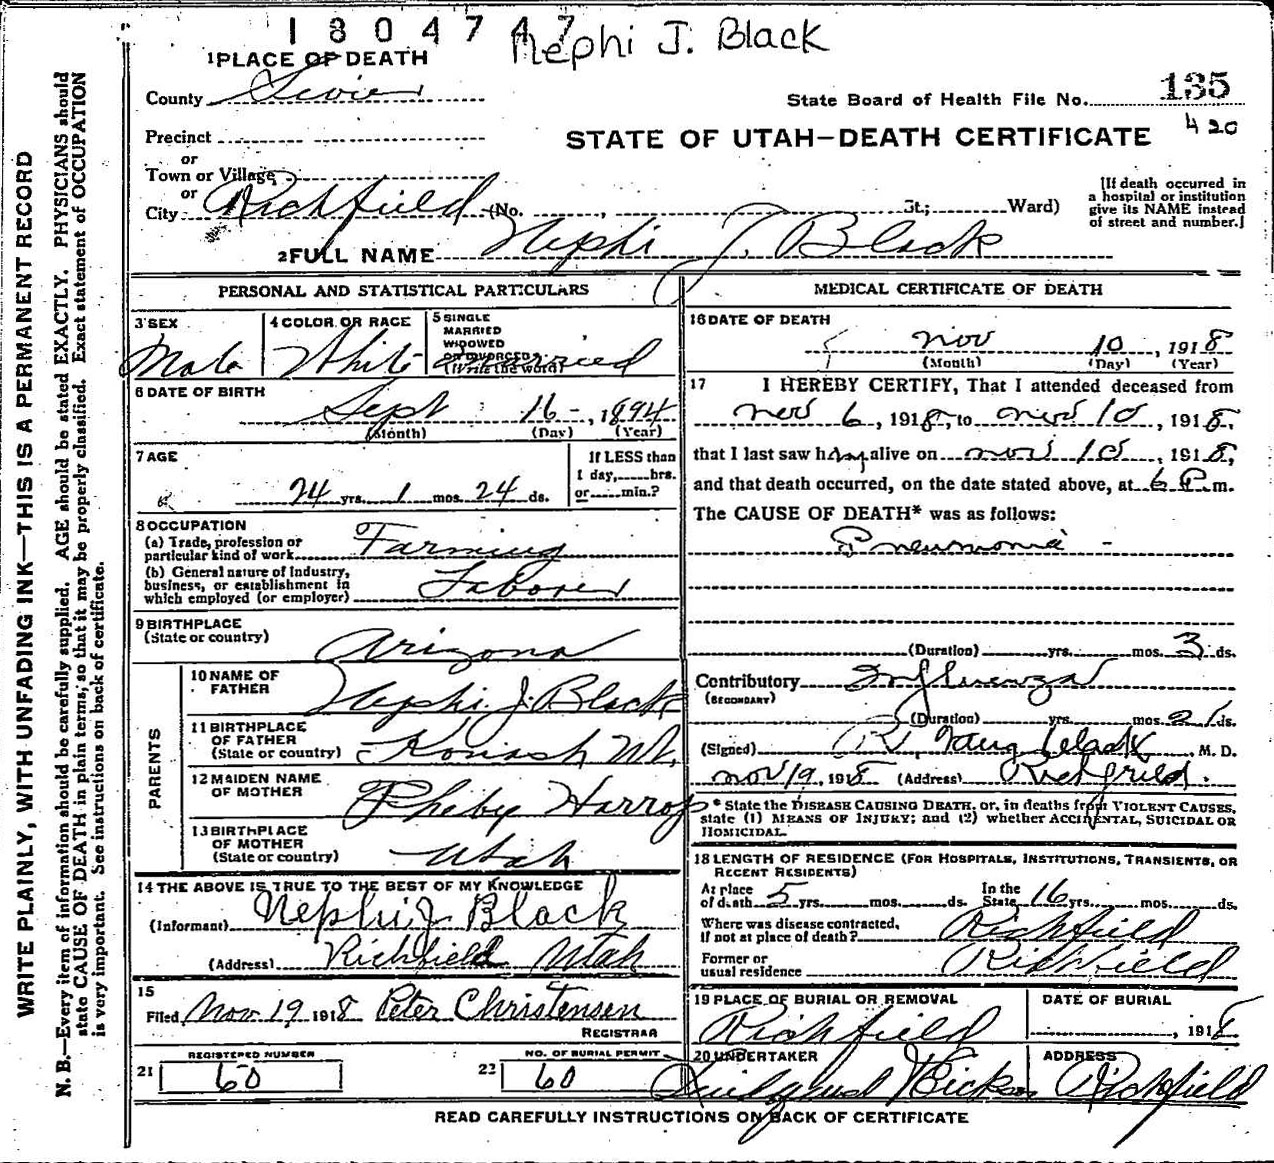 1804747 Nephi J. Black
1 PLACE OF DEATH
County Sevier
State Board of Health File No. 135
420
STATE OF UTAH—DEATH CERTIFICATE
Precinct
or
Town or Village
or
City Richfield (No. , St.; Ward)
[If death occurred in
a hospital or institution
give its NAME instead
of street and number.]
2 FULL NAME Nephi J. Black
PERSONAL AND STATISTICAL PARTICULARS
3 SEX
Male
4 COLOR OR RACE
White
5 SINGLE
MARRIED
WIDOWED
OR DIVORCED
(Write the word)
Married
6 DATE OF BIRTH
Sept 16 - , 1894
(Month) (Day) (Year)
7 AGE
24 yrs. 1 mos. 24 ds.
If LESS than
1 day, hrs.
or min.?
8 OCCUPATION
(a) Trade, profession or
particular kind of work Farming
(b) General nature of Industry,
business, or establishment in
which employed (or employer) Laborer
9 BIRTHPLACE
(State or country)
Arizona
PARENTS
10 NAME OF
FATHER
Nephi J. Black
11 BIRTHPLACE
OF FATHER
(State or country) Kanosh Ut.
12 MAIDEN NAME
OF MOTHER
Pheby Harrop
13 BIRTHPLACE
OF MOTHER
(State or country) Utah
14 THE ABOVE IS TRUE TO THE BEST OF MY KNOWLEDGE
(Informant) Nephi J Black
(Address) Richfield Utah
15
Filed Nov. 19 1918 Peter Christensen
REGISTRAR
REGISTERED NUMBER
21 60
NO. OF BURIAL PERMIT
22 60
MEDICAL CERTIFICATE OF DEATH
16 DATE OF DEATH
Nov 10 , 1918
(Month) (Day) (Year)
17 I HEREBY CERTIFY, That I attended deceased from
Nov 6 , 1918, to Nov 10 , 1918,
that I last saw him alive on Nov 10 , 1918,
and that death occurred, on the date stated above, at 6 P.m.
The CAUSE OF DEATH* was as follows:
Pneumonia -
(Duration) yrs. mos. 3 ds.
Contributory Influenza
(SECONDARY)
(Duration) yrs. mos. ds.
(Signed) Black M. D.
Nov 19, 1918 (Address) Richfield.
* State the DISEASE CAUSING DEATH, or, in deaths from VIOLENT CAUSES,
state (1) MEANS OF INJURY; and (2) whether ACCIDENTAL, SUICIDAL OR
HOMICIDAL.
18 LENGTH OF RESIDENCE (FOR HOSPITALS, INSTITUTIONS, TRANSIENTS, OR
RECENT RESIDENTS)
At place
of death 5 yrs. mos. ds. In the
State 16 yrs. mos. ds.
Where was disease contracted,
if not at place of death? Richfield
Former or
usual residence Richfield
19 PLACE OF BURIAL OR REMOVAL
Richfield
DATE OF BURIAL
, 1918
20 UNDERTAKER
ADDRESS
Richfield
READ CAREFULLY INSTRUCTIONS ON BACK OF CERTIFICATE
WRITE PLAINLY, WITH UNFADING INK—THIS IS A PERMANENT RECORD
N. B.—Every item of information should be carefully supplied. AGE should be stated EXACTLY. PHYSICIANS should
state CAUSE OF DEATH in plain terms, so that it may be properly classified. Exact statement of OCCUPATION
is very important. See instructions on back of certificate.